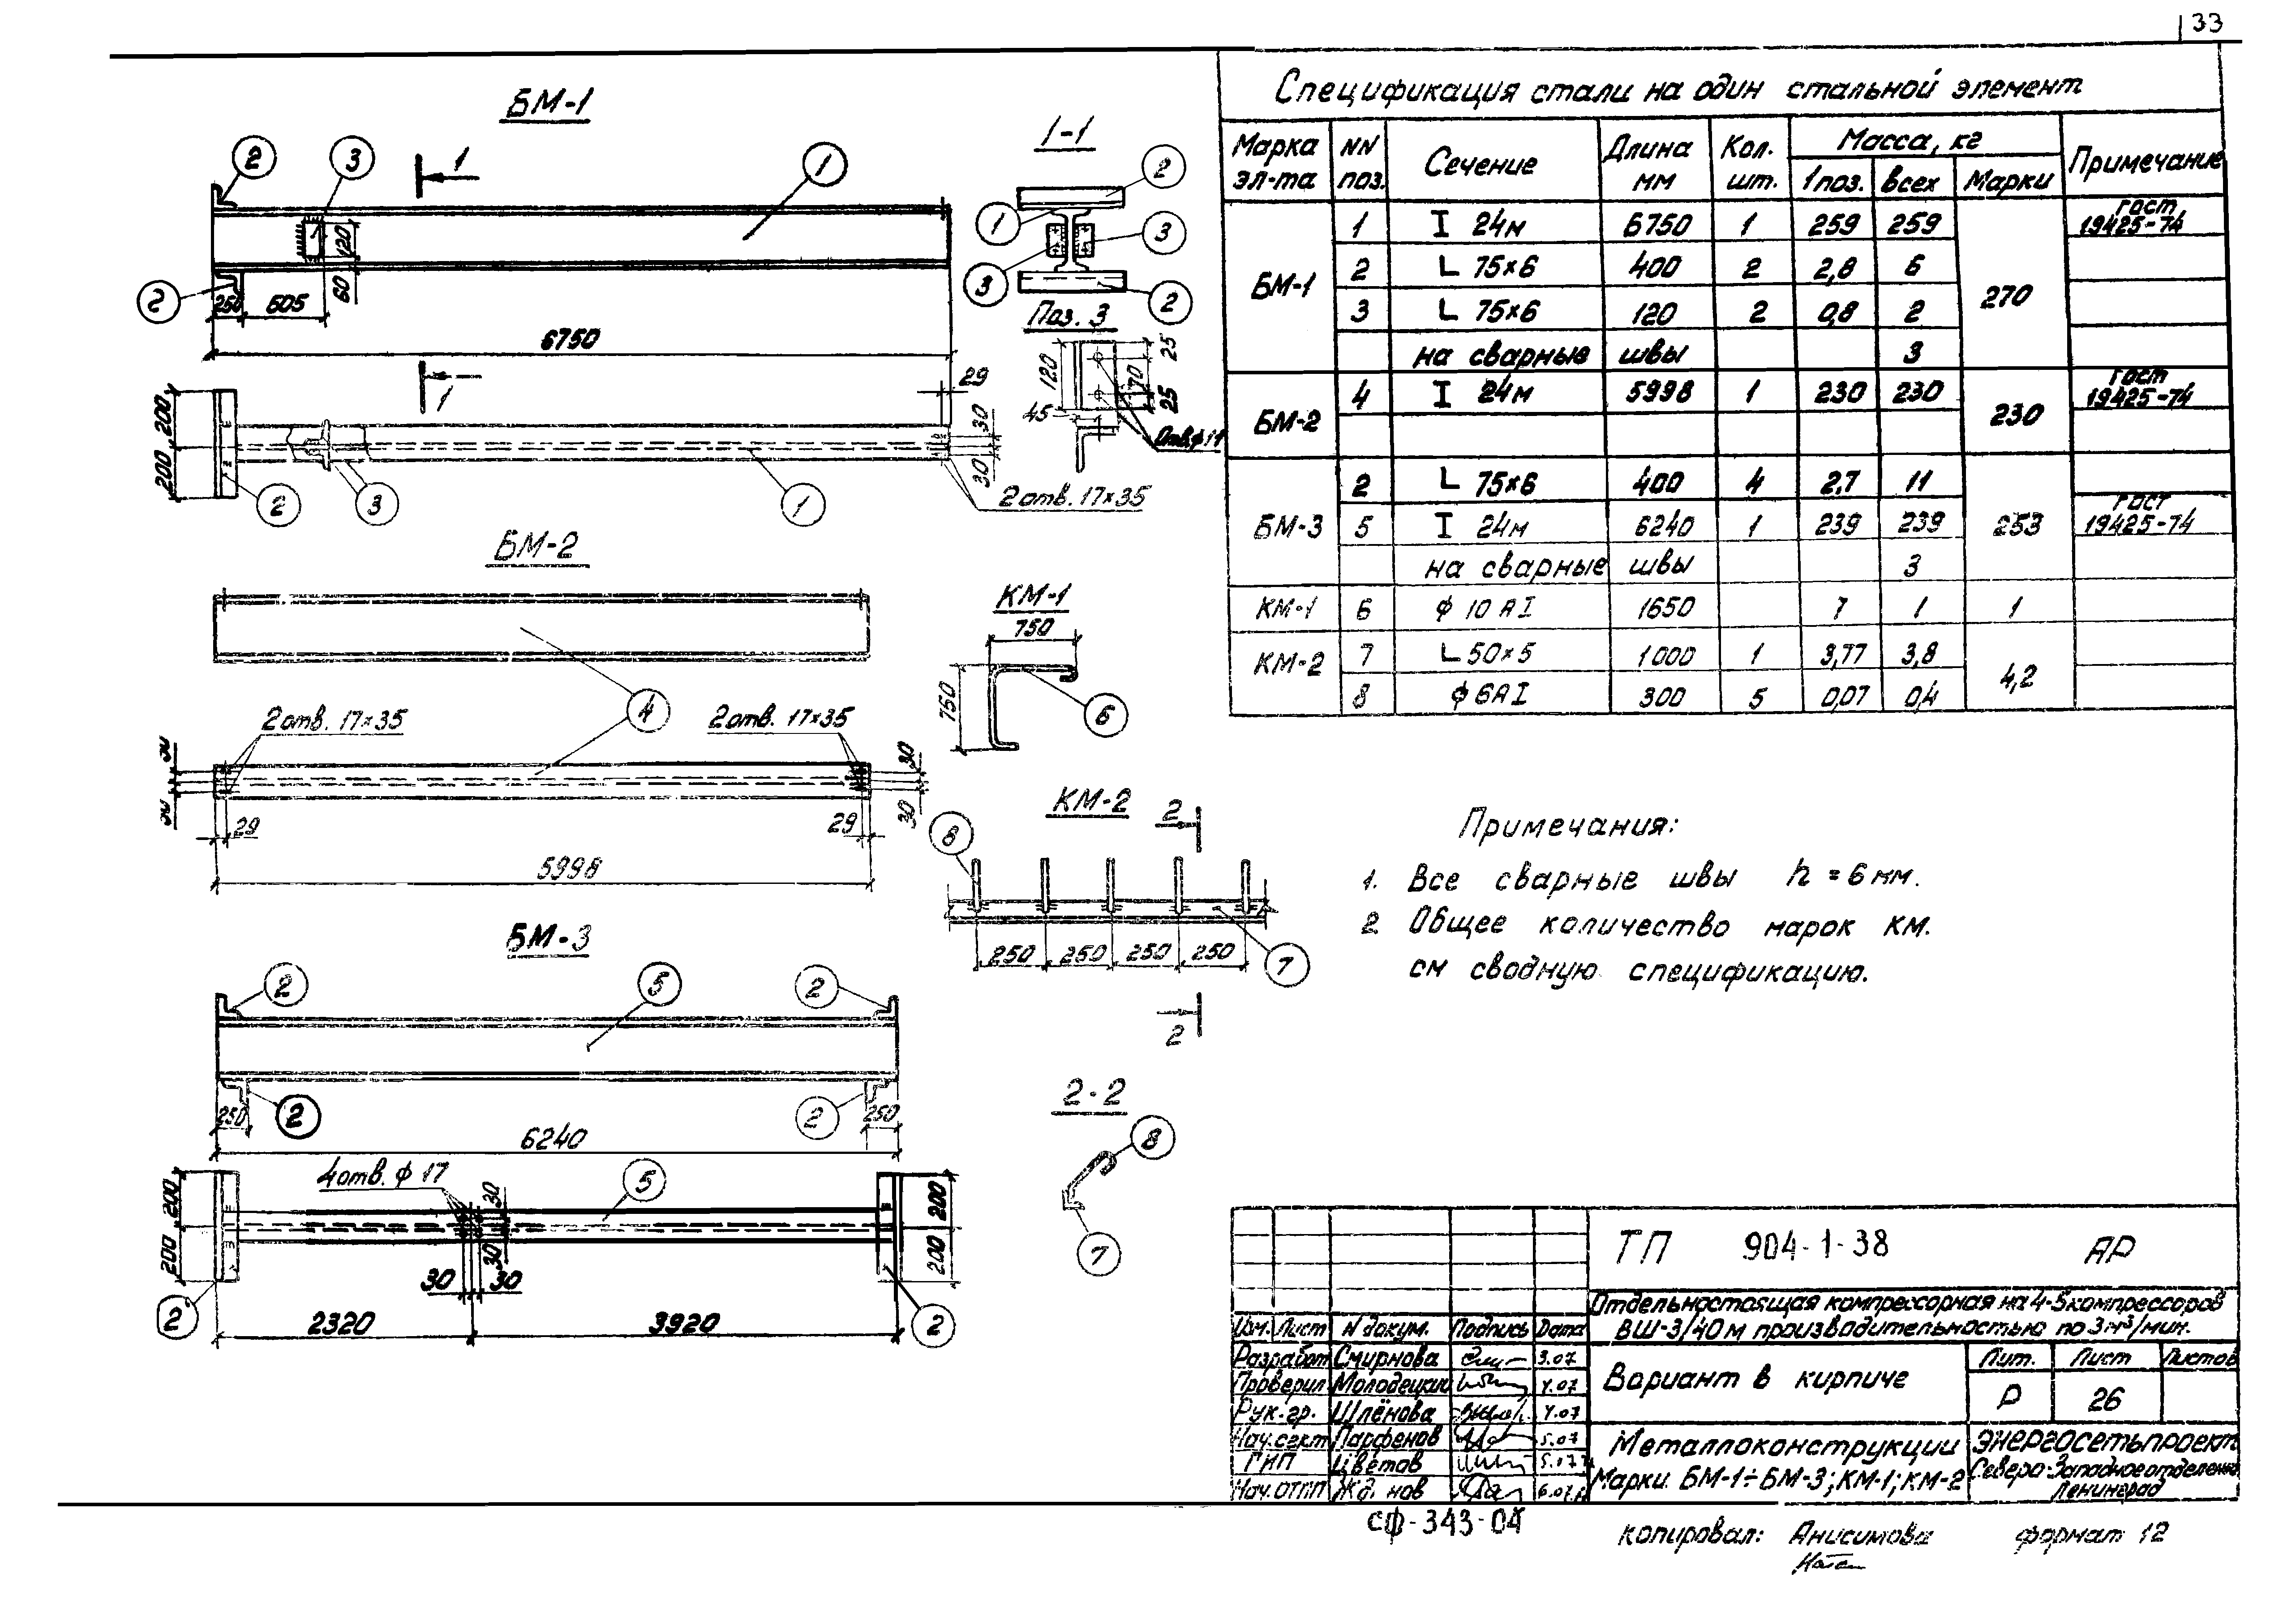 33
БМ-1
2
3
1
1
1-1
2
1
3
3
2
120
60
2
250
605
6750
Поз. 3
120
25
70
25
45
Отв.ф11
1
29
200
200
30
30
2
3
1
2отв. 17×35
БМ-2
4
2отв. 17×35
2отв. 17×35
30
30
29
29
5998
КМ-1
750
750
6
КМ-2
2
8
250
250
250
250
7
2
БМ-3
2
5
2
2
2
250
250
6240
4отв. ф 17
5
200
200
30
30
200
200
30
30
2
2
2320
3920
2-2
8
7
Спецификация стали на один стальной элемент
Марка эл-та | NN поз. | Сечение | Длина мм | Кол. шт. | Масса, кг | Примечание
1 поз. | всех | Марки
БМ-1 | 1 | I 24м | 6750 | 1 | 259 | 259 | 270 | гост 19425-74
2 | L 75×6 | 400 | 2 | 2,8 | 6
3 | L 75×6 | 120 | 2 | 0,8 | 2
на сварные швы | 3
БМ-2 | 4 | I 24м | 5998 | 1 | 230 | 230 | 230 | гост 19425-74
БМ-3 | 2 | L 75×6 | 400 | 4 | 2,7 | 11 | 253
5 | I 24м | 6240 | 1 | 239 | 239 | гост 19425-74
на сварные швы | 3
КМ-1 | 6 | ф 10 А I | 1650 | 1 | 1 | 1
КМ-2 | 7 | L 50×5 | 1000 | 1 | 3,77 | 3,8 | 4,2
8 | ф 6А I | 300 | 5 | 0,07 | 0,4
Примечания:
1. Все сварные швы h = 6 мм.
2. Общее количество марок КМ.
см сводную спецификацию.
ТП 904-1-38 АР
Отдельностоящая компрессорная на 4-5 компрессоров
ВШ-3/40м производительностью по 3м³/мин.
Изм. Лист N докум. Подпись Дата
Разработ Смирнова 3.07
Проверил Молодецкий 4.07
Рук.гр. Шлёнова 4.07
Нач.сект Парфенов 5.07
ГИП Цветов 5.07
Нач.ОТП 6.07
Вариант в кирпиче
Лит. Лист Листов
Р 26
Металлоконструкции
Марки БМ-1÷БМ-3; КМ-1; КМ-2
ЭНЕРГОСЕТЬПРОЕКТ
Северо-Западное отделение
Ленинград
СФ-343-04
Копировал: Анисимова
формат 12